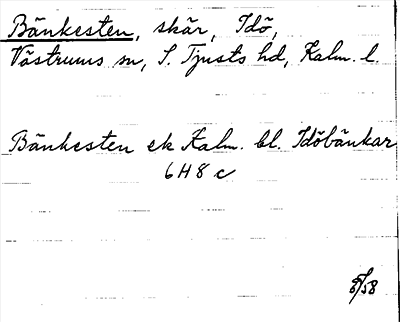 Bänkesten, skär, Idö,
Västrums sn, S. Tjusts hd, Kalm. l.
Bänkesten ek Kalm. bl. Idöbänkar
6H8c